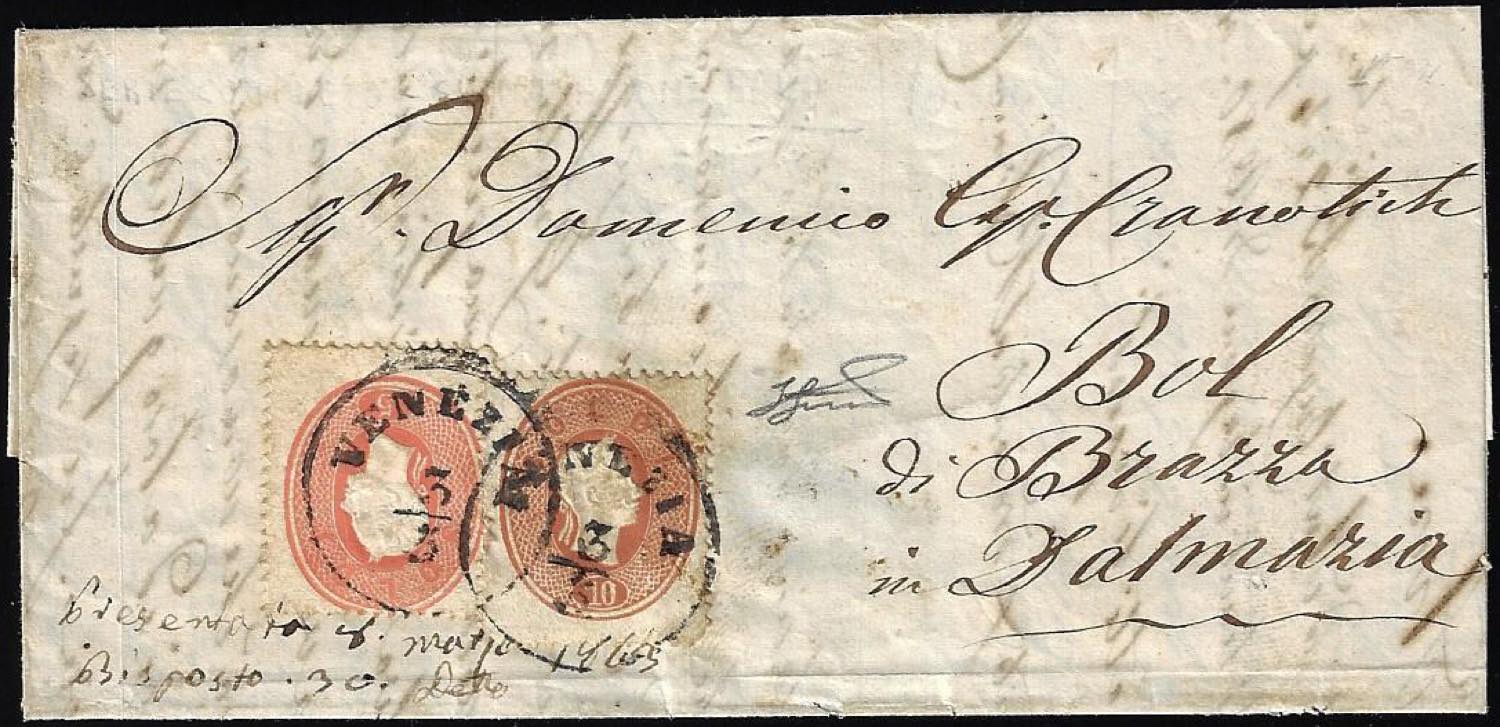 Sigr. Domenico Cap. Cranotich
Bol
di Brazza
in Dalmazia
VENEZIA
3
VENEZIA
3
10
Presentata 8. marzo 1863
Risposto. 30. Detto